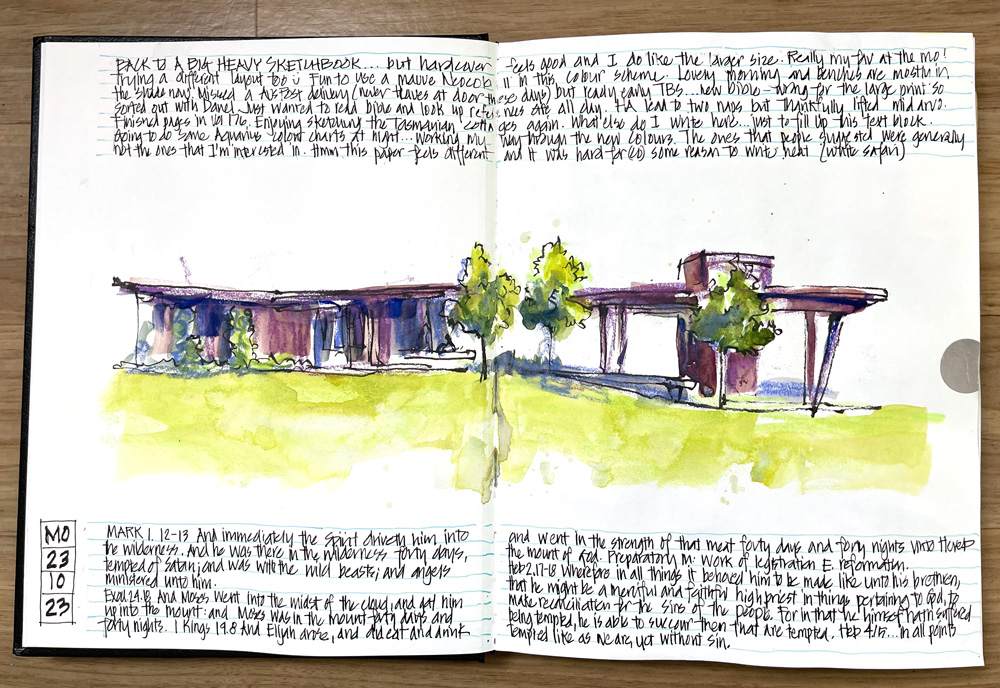 BACK TO A BIG HEAVY SKETCHBOOK... but hardcover feels good and I do like the larger size. Really my fav at the mo!
Trying a different layout too :) Fun to use a mauve Neocolor II in this colour scheme. Lovely morning and benches are mostly in
the shade now. Missed a AusPost delivery (never leaves at door these days) but ready early TBS... new bible - trying for the large print so
sorted out with Daniel. Just wanted to read bible and look up references etc all day. HA lead to two naps but thankfully lifted mid arvo.
Finished pages in Vol 176. Enjoying sketching the Tasmanian cottages again. What else do I write here... just to fill up this text block.
Going to do some Aquarius colour charts at night... working my way through the new colours. The ones that people suggested were generally
not the ones that I'm interested in. Hmm this paper feels different and it was hard for some reason to write neat (white safari)
MO
23
10
23
MARK 1. 12-13 And immediately the spirit driveth him into
the wilderness. And he was there in the wilderness forty days,
tempted of Satan; and was with the wild beasts; and angels
ministered unto him.
Exod 24.18 And Moses went into the midst of the cloud, and gat him
up into the mount: and Moses was in the mount forty days and
forty nights. 1 Kings 19.8 And Elijah arose, and did eat and drink
and went in the strength of that meat forty days and forty nights unto Horeb
the mount of God. Preparatory M: work of legistration E. reformation.
Heb 2.17-18 Wherefore in all things it behoved him to be made like unto his brethren,
that he might be a merciful and faithful high priest in things pertaining to God, to
make reconciliation for the sins of the people. For in that he himself hath suffered
being tempted, he is able to succour them that are tempted. Heb 4.15... in all points
tempted like as we are, yet without sin.